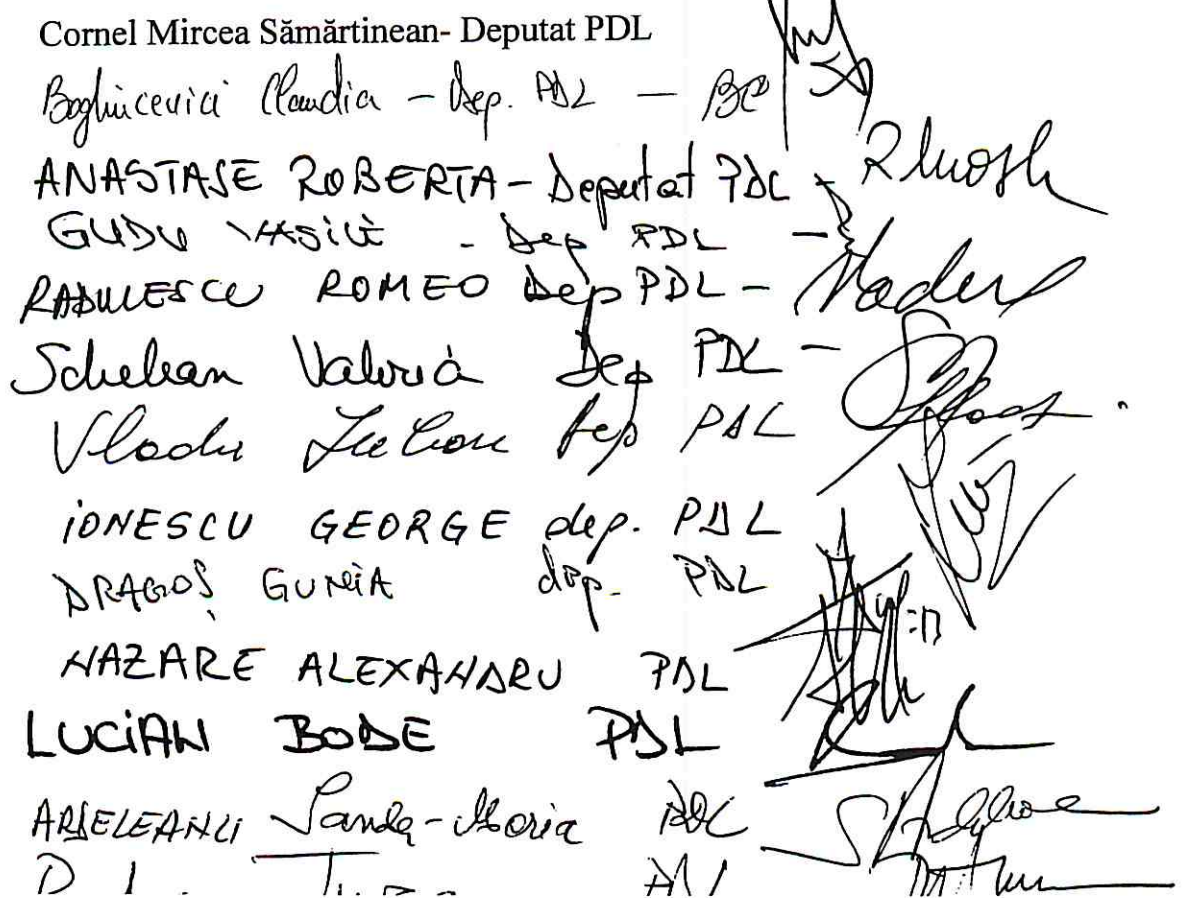 Cornel Mircea Sămărtinean- Deputat PDL
Boghicevici Claudia - Dep. PDL - BC
ANASTASE ROBERTA - Deputat PDL -
GUDU VASILE - Dep PDL -
RADULESCU ROMEO Dep PDL -
Schelean Valeria Dep PDL -
Vladu Iulian Dep PDL
IONESCU GEORGE dep. PDL
DRAGOȘ GUNIA dep. PDL
NAZARE ALEXANDRU PDL
LUCIAN BODE PDL
ARDELEANU Sanda-Maria PDL